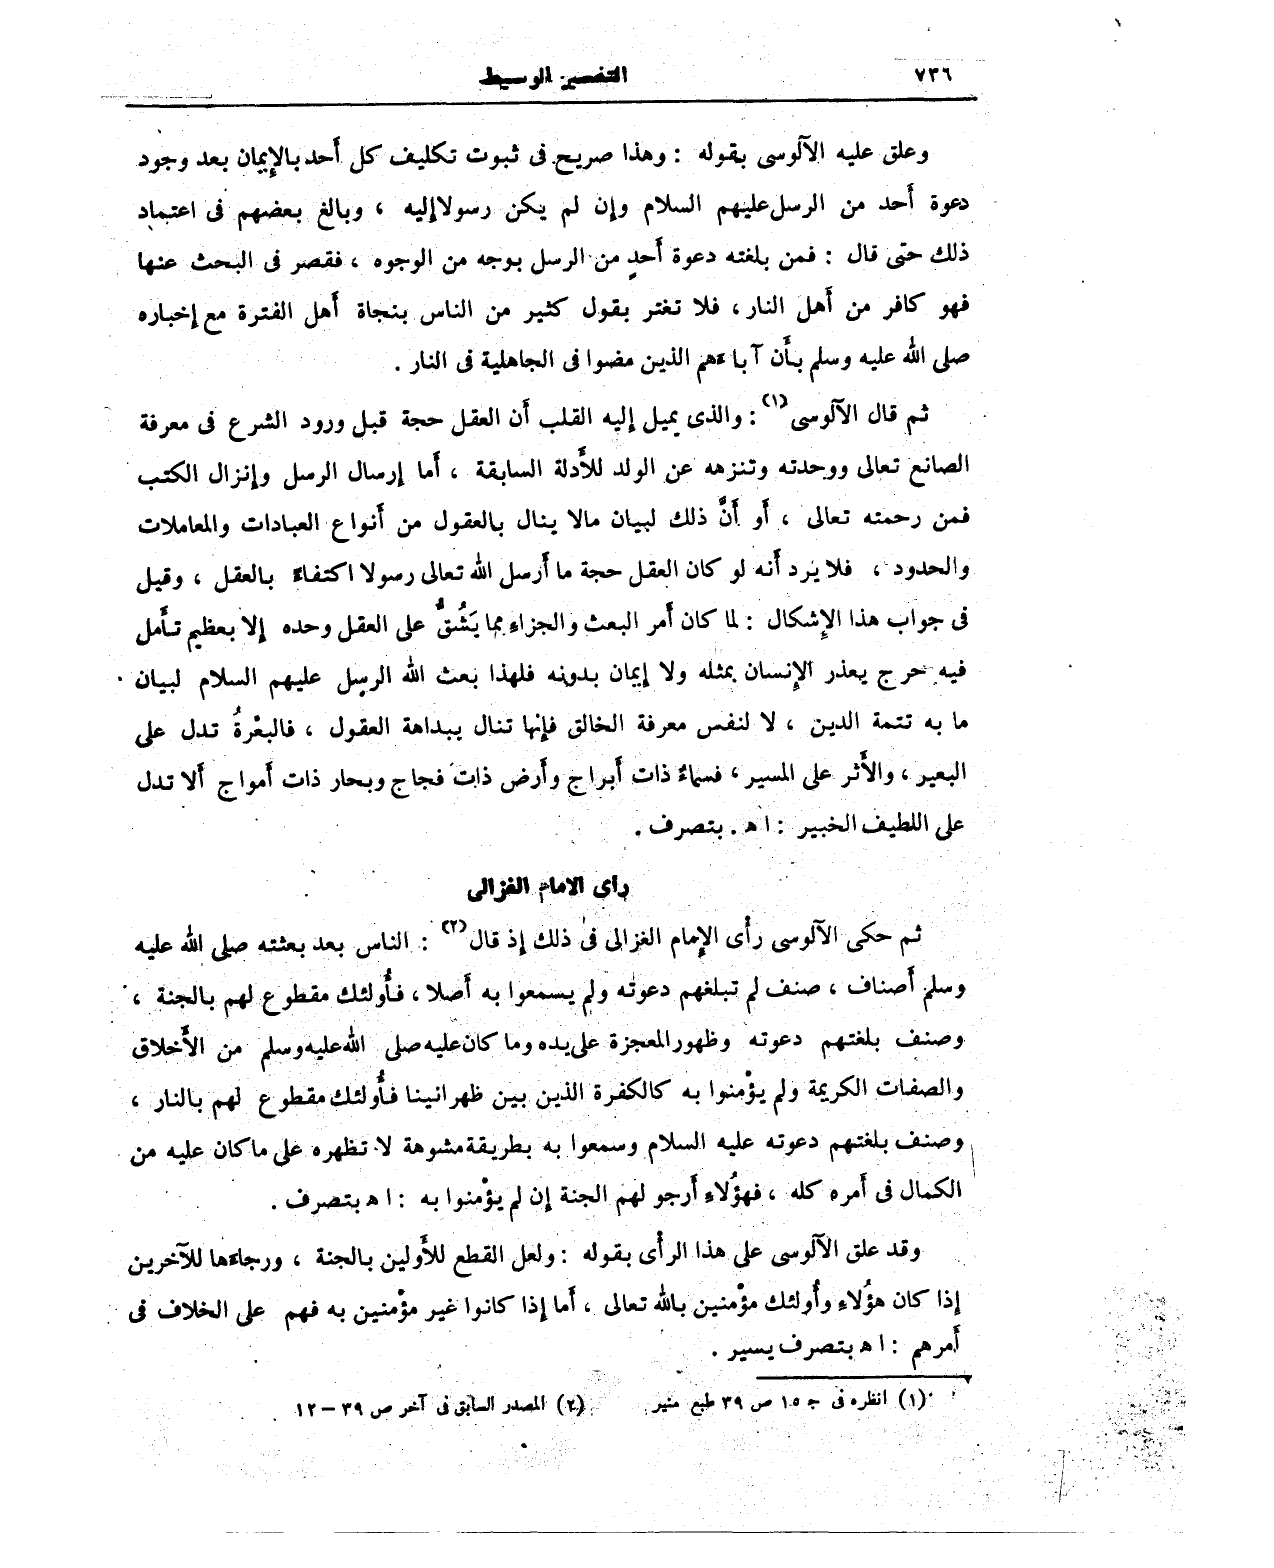 ٧٣٦ التفسير الوسيط
وعلق عليه الآلوسى بقوله : وهذا صريح فى ثبوت تكليف كل أحد بالإيمان بعد وجود
دعوة أحد من الرسل عليهم السلام وإن لم يكن رسولا إليه ، وبالغ بعضهم فى اعتماد
ذلك حتى قال : فمن بلغته دعوة أحدٍ من الرسل بوجه من الوجوه ، فقصر فى البحث عنها
فهو كافر من أهل النار ، فلا تغتر بقول كثير من الناس بنجاة أهل الفترة مع إخباره
صلى الله عليه وسلم بأن آباءهم الذين مضوا فى الجاهلية فى النار .
ثم قال الآلوسى (١) : والذى يميل إليه القلب أن العقل حجة قبل ورود الشرع فى معرفة
الصانع تعالى ووحدته وتنزهه عن الولد للأدلة السابقة ، أما إرسال الرسل وإنزال الكتب
فمن رحمته تعالى ، أو أنَّ ذلك لبيان مالا ينال بالعقول من أنواع العبادات والمعاملات
والحدود ، فلا يرد أنه لو كان العقل حجة ما أرسل الله تعالى رسولا اكتفاءً بالعقل ، وقيل
فى جواب هذا الإشكال : لما كان أمر البعث والجزاء مما يَشُقُّ على العقل وحده إلا بعظيم تأمل
فيه حرج يعذر الإنسان بمثله ولا إيمان بدونه فلهذا بعث الله الرسل عليهم السلام لبيان
ما به تتمة الدين ، لا لنفس معرفة الخالق فإنها تنال ببداهة العقول ، فالبعْرةُ تدل على
البعير ، والأثر على المسير ، فسماءٌ ذات أبراج وأرض ذات فجاج وبحار ذات أمواج ألا تدل
على اللطيف الخبير : ا ه . بتصرف .
رأى الامام الغزالى
ثم حكى الآلوسى رأى الإمام الغزالى فى ذلك إذ قال (٢) : الناس بعد بعثته صلى الله عليه
وسلم أصناف ، صنف لم تبلغهم دعوته ولم يسمعوا به أصلا ، فأُولئك مقطوع لهم بالجنة ،
وصنف بلغتهم دعوته وظهور المعجزة على يده وما كان عليه صلى الله عليه وسلم من الأخلاق
والصفات الكريمة ولم يؤمنوا به كالكفرة الذين بين ظهرانينا فأُولئك مقطوع لهم بالنار ،
وصنف بلغتهم دعوته عليه السلام وسمعوا به بطريقة مشوهة لا تظهره على ما كان عليه من
الكمال فى أمره كله ، فهؤُلاء أرجو لهم الجنة إن لم يؤمنوا به : ا ه بتصرف .
وقد علق الآلوسى على هذا الرأى بقوله : ولعل القطع للأولين بالجنة ، ورجاءها للآخرين
إذا كان هؤُلاء وأُولئك مؤمنين بالله تعالى ، أما إذا كانوا غير مؤمنين به فهم على الخلاف فى
أمرهم : ا ه بتصرف يسير .
(١) انظره فى ج ١٥ ص ٣٩ طبع منير (٢) المصدر السابق فى آخر ص ٣٩ – ١٢